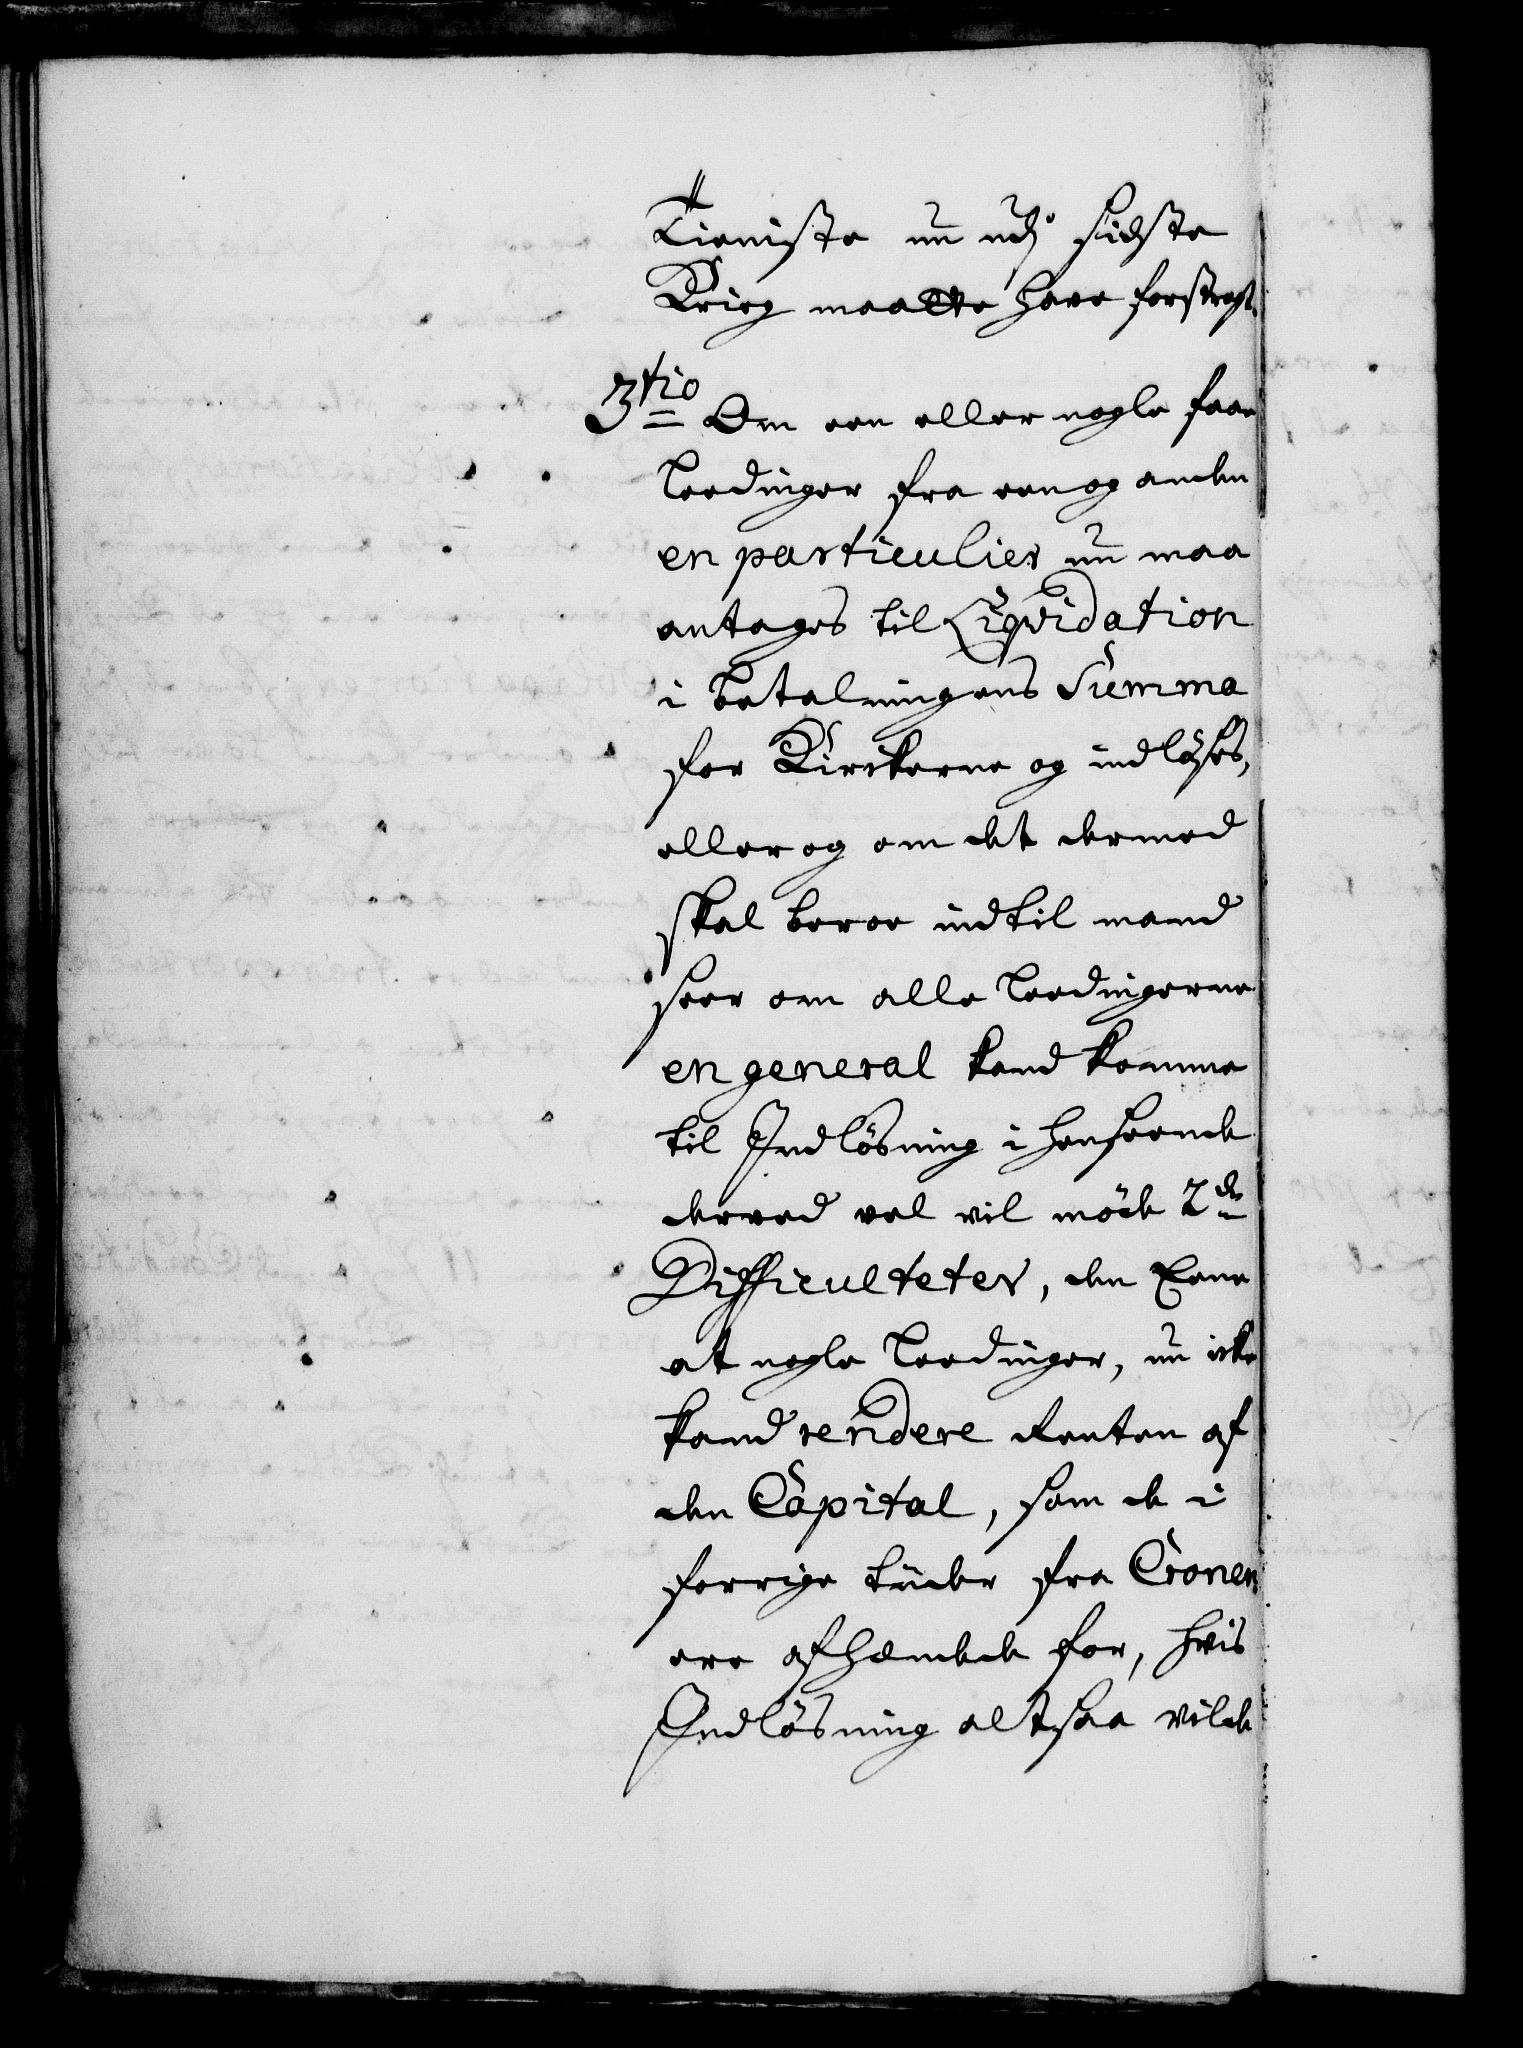 Tieniste nu udj sidste
Krieg maatte have forstragt.
3tio Om een eller nogle faae
Leedinger fra een og anden
en particulier nu maa
antages til Liqvidation
i betalningens Summa
for Kirkerne og indløses,
eller og om det dermed
skal beroe indtil mand
seer om alle Leedingerne
en general kand komme
til Indlösning i henseende
derved vel vil möde 2de
Difficulteter, den Eene
at nogle Leedinger, nu icke
kand rendere Renten af
den Capital, som de i
forrige tiider fra Cronen
ere afhændede for, hvis
Indlösning altsaa vilde